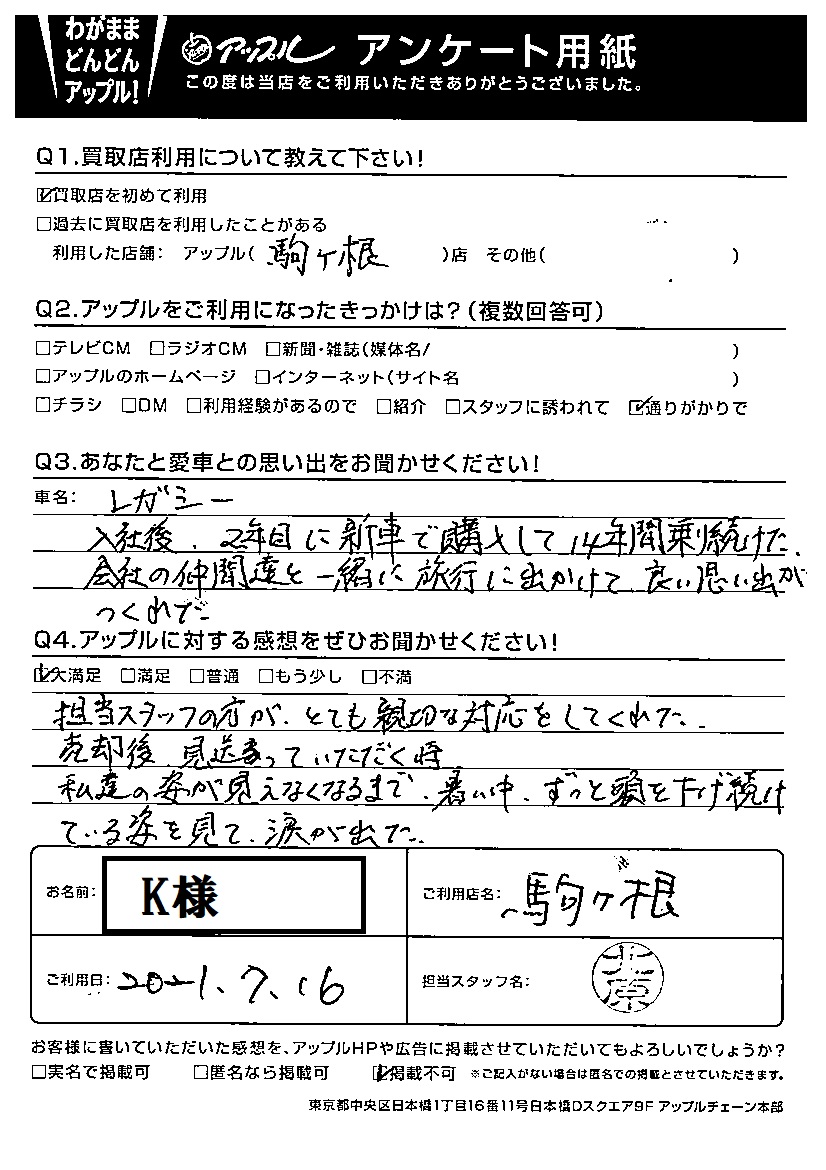 わがまま
どんどん
アップル!
アップル アンケート用紙
この度は当店をご利用いただきありがとうございました。
Q1.買取店利用について教えて下さい!
☑買取店を初めて利用
□過去に買取店を利用したことがある
利用した店舗: アップル( 駒ヶ根 )店 その他( )
Q2.アップルをご利用になったきっかけは?(複数回答可)
□テレビCM □ラジオCM □新聞・雑誌(媒体名/ )
□アップルのホームページ □インターネット(サイト名 )
□チラシ □DM □利用経験があるので □紹介 □スタッフに誘われて ☑通りがかりで
Q3.あなたと愛車との思い出をお聞かせください!
車名: レガシー
入社後、2年目に新車で購入して14年間乗り続けた、
会社の仲間達と一緒に旅行に出かけて良い思い出が
つくれた
Q4.アップルに対する感想をぜひお聞かせください!
☑大満足 □満足 □普通 □もう少し □不満
担当スタッフの方が、とても親切な対応をしてくれた。
売却後、見送っていただく時
私達の姿が見えなくなるまで、暑い中、ずっと頭を下げ続け
ている姿を見て、涙が出た。
お名前: K様
ご利用店名: 駒ヶ根
ご利用日: 2021.7.16
担当スタッフ名: 北原
お客様に書いていただいた感想を、アップルHPや広告に掲載させていただいてもよろしいでしょうか?
□実名で掲載可 □匿名なら掲載可 ☑掲載不可 ※ご記入がない場合は匿名での掲載とさせていただきます。
東京都中央区日本橋1丁目16番11号日本橋Dスクエア9F アップルチェーン本部